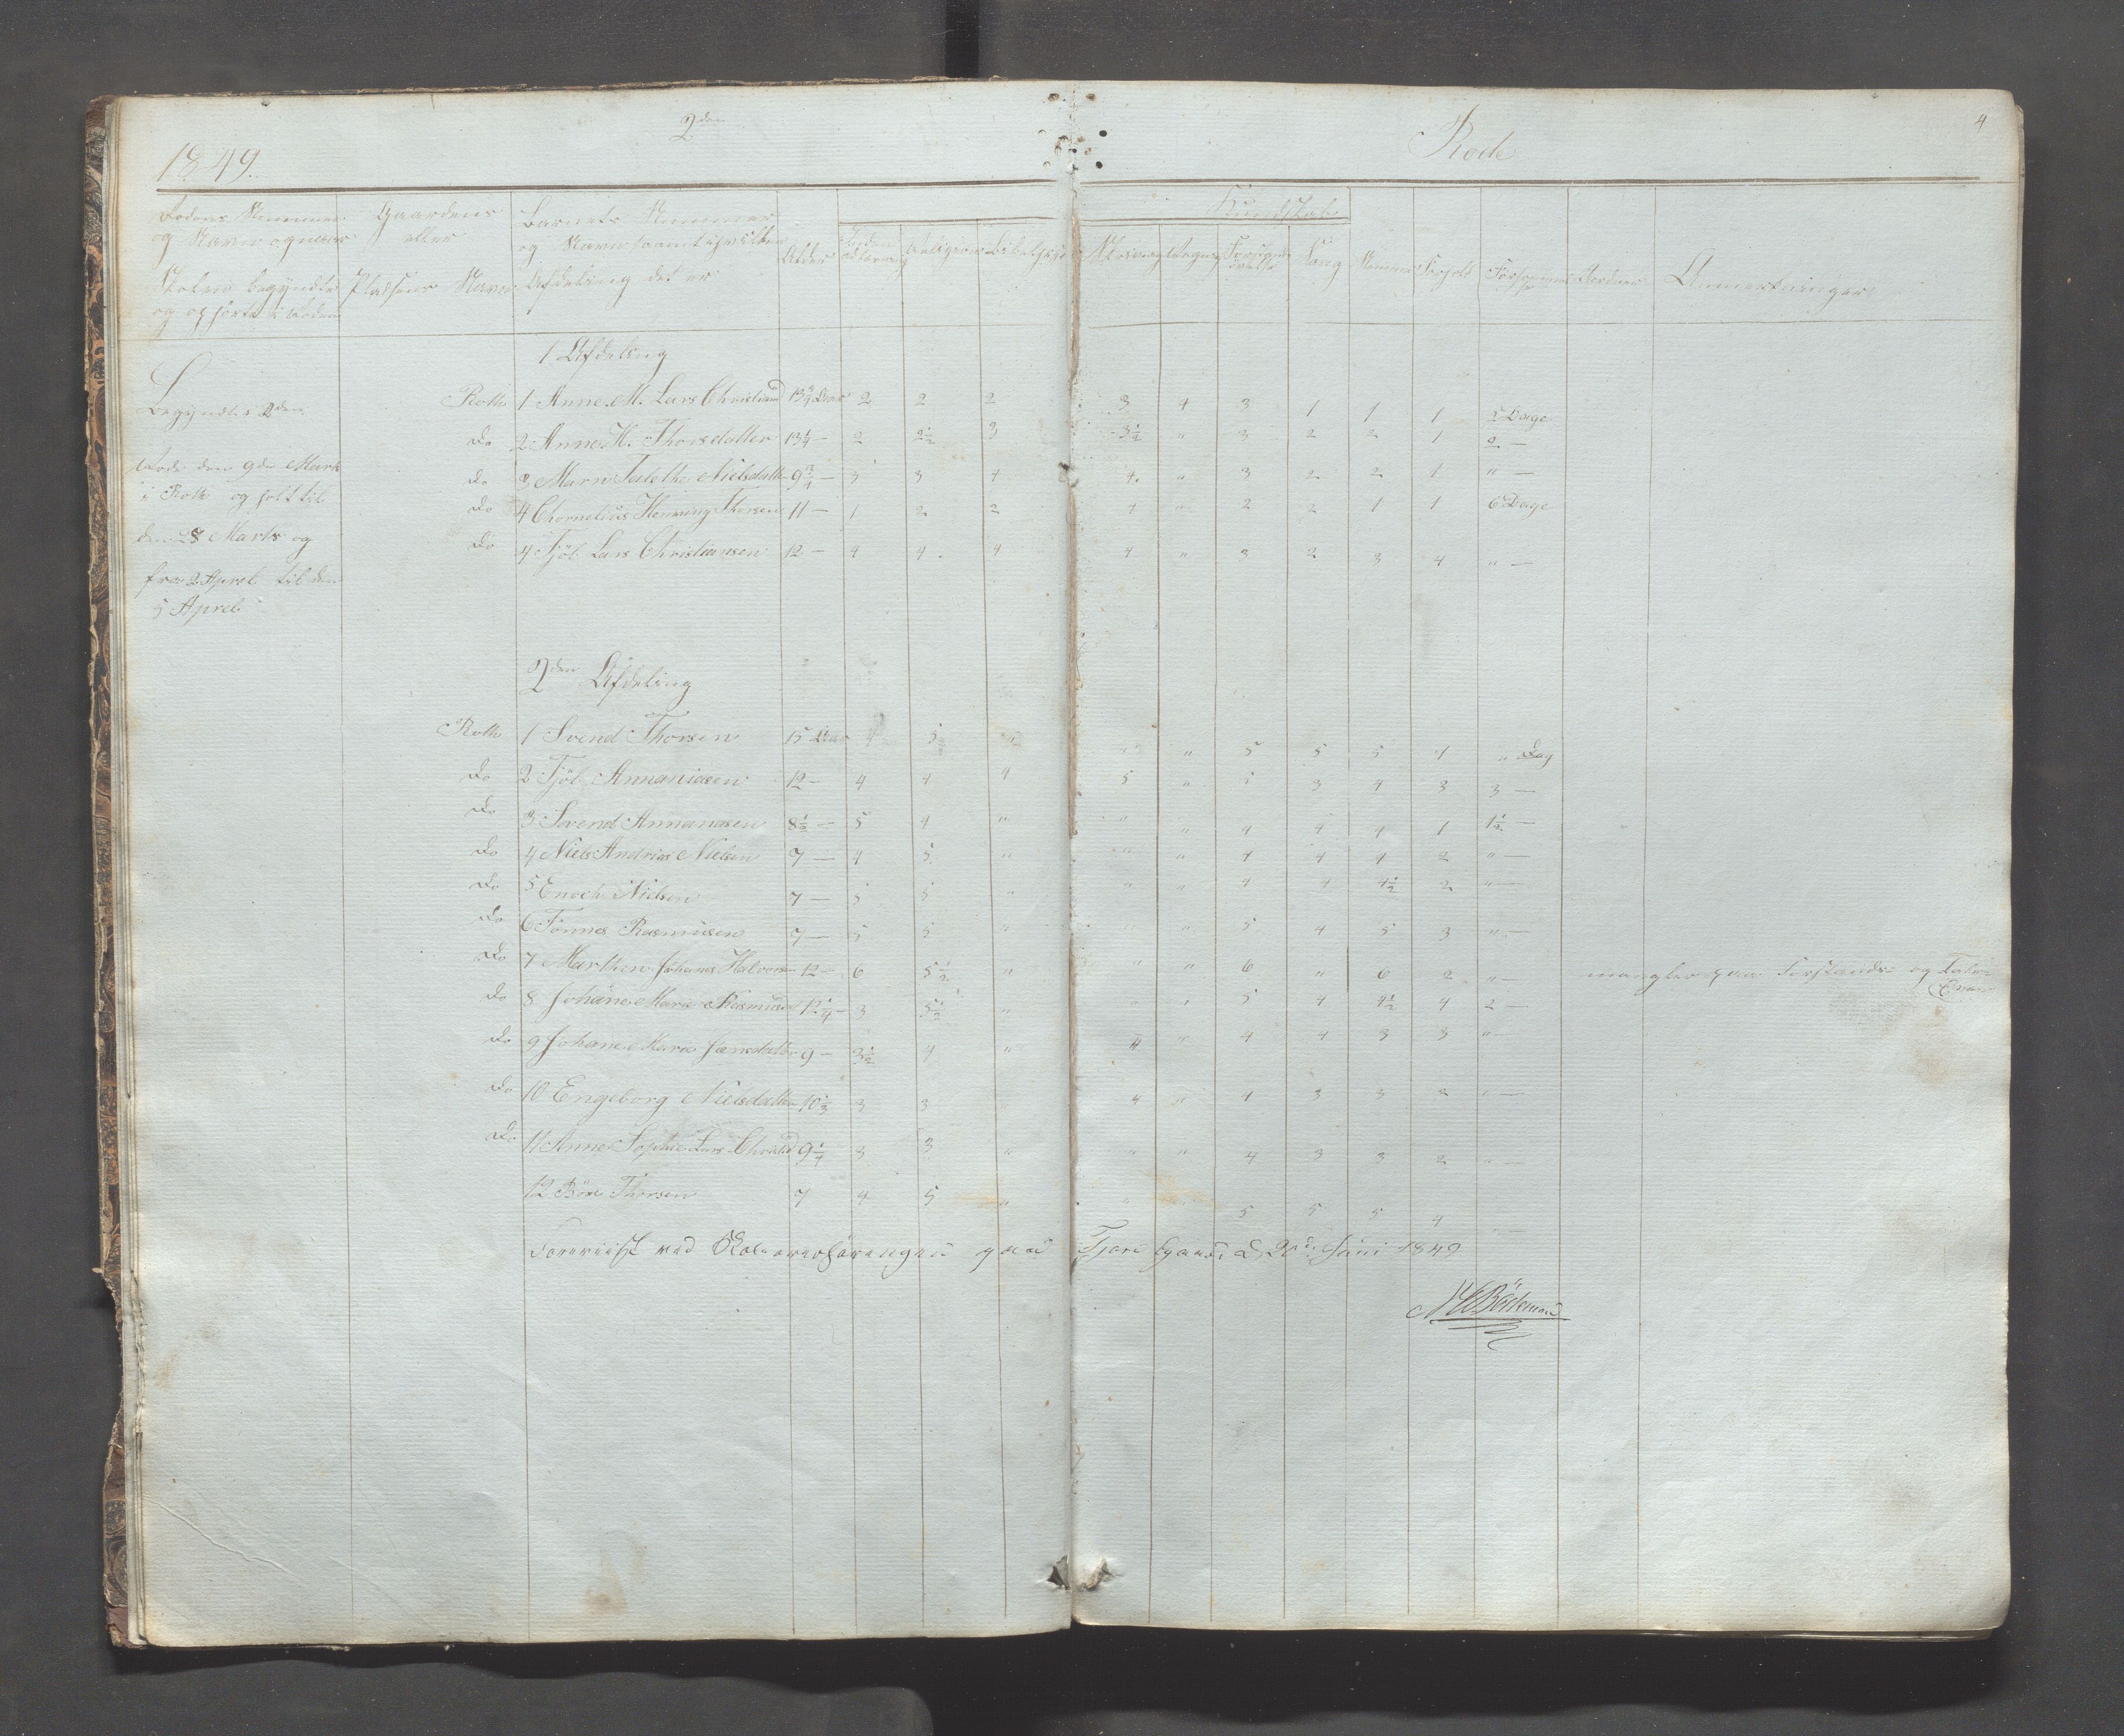 2den Rode 4
1849.
Rodens Nummer og Navn og naar Skolen begyndte og ophørte i Roden
Gaardens eller Pladsens Navn
Barnets Nummer og Navn samt i hvilken Afdeling det er
Alder
Religion
Kundskab
Skrivning Regning Sang
Anmerkninger
1 Afdeling
Begyndte 2den
Rode den 9de Marts
i Roth og holt til
den 28 Marts og
fra 2 Aprel til den
5 Aprel
Roth 1 Anne M. Lars Christiansd 13 3/4 Aar 2 2 2 3 4 3 1 1 1 2 Dage
Do 2 Anne H. Thorsdatter 13 1/4 — 2 2 1/2 3 3 1/2 " 3 2 2 1 2 —
Do 3 Maren Talethe Nielsdatter 9 3/4 — 3 3 4 4 " 3 2 2 1 " —
Do 4 Chornelius Henning Thorsen 11 — 1 2 2 4 " 2 2 1 1 6 Dage
Do 4 Tjöl Lars Christiansen 12 — 4 4 4 4 " 3 2 3 4 " —
2den Afdeling
Roth 1 Svend Thorsen 15 Aar 4 5 " " " 5 5 5 4 " Dag
Do 2 Tjöl Annaniasen 12 — 4 4 4 5 " 5 3 4 3 3 —
Do 3 Svend Annanasen 8 1/2 — 5 4 " " " 4 4 4 1 1 1/2 —
Do 4 Niels Andrias Nielsen 7 — 4 5 " " " 4 4 4 2 " —
Do 5 Enoch Nielsen 7 — 5 5 " " " 4 4 4 1/2 2 " —
Do 6 Tönnes Rasmusen 7 — 5 5 " " " 5 4 5 3 " —
Do 7 Marthen Johanes Halvorsen 12 — 6 5 1/2 " " " 6 " 6 2 " — mangler paa Forstands- og Tale-Evner
Do 8 Johane Marie Rasmusen 12 1/4 — 3 5 1/2 " " " 5 4 4 1/2 4 2 —
Do 9 Johane Marie Jansdatter 9 — 3 1/2 4 " " " 4 4 3 3 " —
Do 10 Engeborg Nielsdatter 10 1/3 3 3 " 4 " 4 3 3 2 " —
Do 11 Anne Sophie Lars Christd 9 1/4 3 3 " " " 4 3 3 2 " —
12 Böre Thorsen 7 4 5 " " " 5 5 5 4 " —
Foreviist ved Skoleoverhöringen paa Tjore gaard d. 20de Juni 1849
N C Böckman